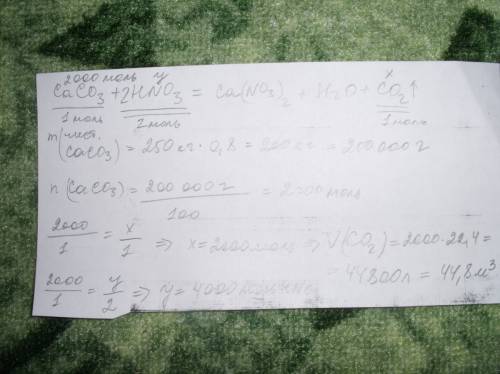 2000 моль y x
CaCO₃ + 2HNO₃ = Ca(NO₃)₂ + H₂O + CO₂↑
1 моль 2 моль 1 моль
m чист. (CaCO₃) = 250 кг · 0,8 = 200 кг = 200 000 г
n (CaCO₃) = 200 000 г / 100 = 2000 моль
2000/1 = x/1 ⇒ x = 2000 моль ⇒ V(CO₂) = 2000 · 22,4 =
= 44800 л = 44,8 м³
2000/1 = y/2 ⇒ y = 4000 моль